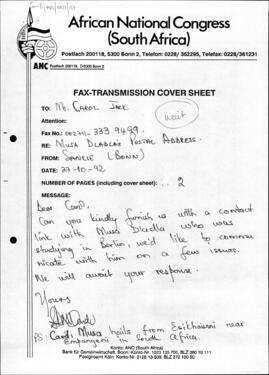 African National Congress
(South Africa)
Postfach 200118, 5300 Bonn 2, Telefon: 0228/ 362295, Telefax: 0228/361231
ANC Postfach 200118, D-5300 Bonn 2
FAX-TRANSMISSION COVER SHEET
TO: Ms. CAROL
wait
Attention:
Fax No.: 002711-333 9499.
RE: MUSA DLADLA'S POSTAL ADDRESS.
FROM: (BONN)
DATE: 27-10-92
NUMBER OF PAGES (including cover sheet): 2
MESSAGE:
Dear Carol,
Can you kindly furnish us with a contact
link with Musa Dladla who was
studying in Berlin, we'd like to commu
nicate with him on a few issues.
We will await your response.
Yours
PS: Carol, Musa hails from Esikhawini near
Empangeni in South Africa
Konto: ANC (South Africa)
Bank für Gemeinwirtschaft, Bonn: Konto-Nr. 1023 135 700, BLZ 380 101 11
Postgiroamt Köln, Konto-Nr. 2128 13-508, BLZ 370 100 50